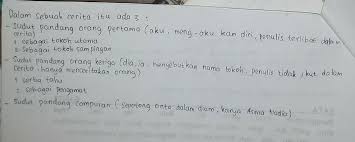 Dalam sebuah cerita itu ada 3 :
- Sudut pandang orang pertama (aku, meng-aku kan diri, penulis terlibat dalam
cerita)
1. sebagai tokoh utama
2. sebagai tokoh sampingan
- Sudut pandang orang ketiga (dia, ia, menyebutkan nama tokoh, penulis tidak ikut dalam
cerita. hanya menceritakan orang)
1. serba tahu
2. sebagai pengamat
- Sudut pandang campuran (sepotong cinta dalam diam, karya Asma Nadia)